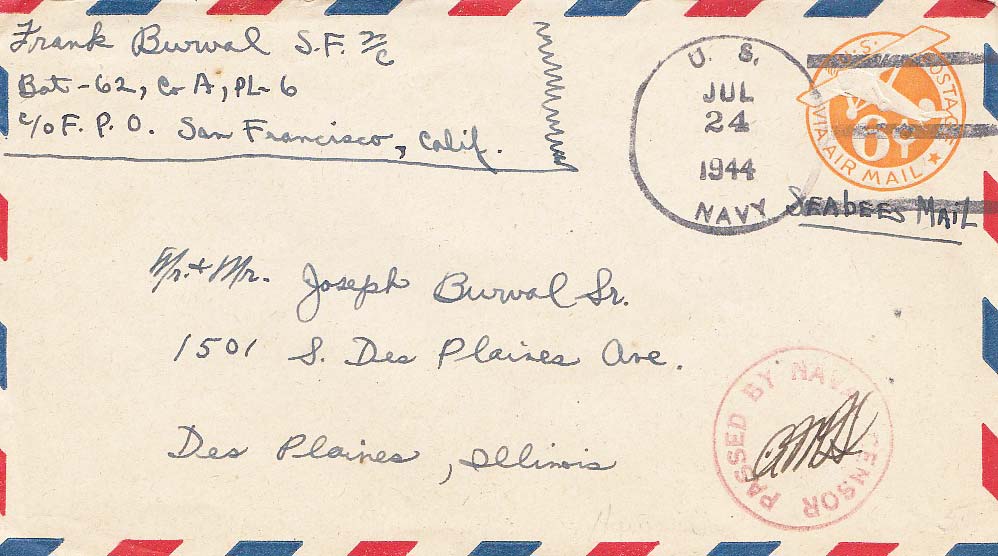 Frank Burval S.F. 2/c
Bat-62, Co A, PL-6
c/o F. P. O. San Francisco, Calif.
U. S.
JUL
24
1944
NAVY
U.S. POSTAGE
6¢
VIA AIR MAIL
SEAbEES MAIL
Mr. + Mr. Joseph Burval Sr.
1501 S. Des Plaines Ave.
Des Plaines, Illinois
PASSED BY NAVAL CENSOR